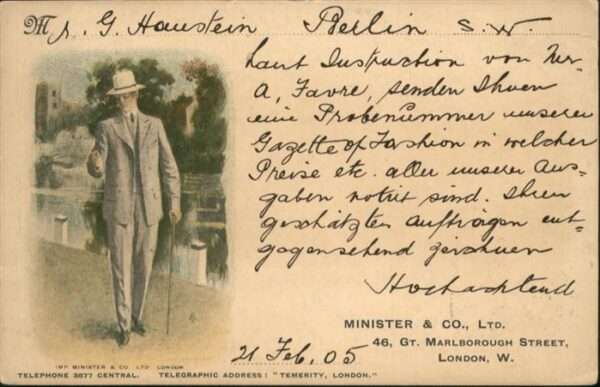 Mr. G. Haustein Berlin S.W.
laut Instruction von Mr.
A. Favre, senden Ihnen
eine Probenummer unserer
Gazette of Fashion in welcher
Preise etc. aller unserer Aus-
gaben notirt sind. Ihren
geschätzten Aufträgen ent-
gegensehend zeichnen
Hochachtend
MINISTER & CO., LTD.
46, GT. MARLBOROUGH STREET,
LONDON, W.
21 Feb. 05
IMP. MINISTER & CO. LTD. LONDON.
TELEPHONE 5677 CENTRAL. TELEGRAPHIC ADDRESS: "TEMERITY, LONDON."